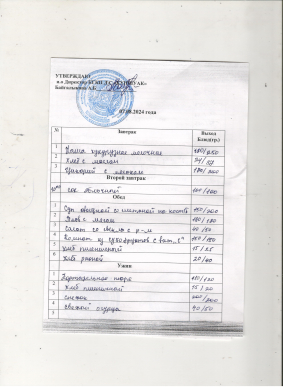 УТВЕРЖДАЮ
и.о Директор
Байгельдинова А.Б.
07.08.2024 года
№ Завтрак Выход Банд(гр.)
1 Каша кукурузная молочная 180/250
2 Хлеб с маслом
3 с молоком 180/200
Второй завтрак
сок яблочный 100/100
Обед
1 Суп овощной со сметаной на косто 150/200
2 Плов с мясом
3 Салат со свеклы с р-м 40/50
4 Компот из сухофруктов с вит. "С" 150/180
5 Хлеб пшеничный 15/25
6 хлеб ржаной 20/40
Ужин
1 Картофельное пюре 110/120
2 Хлеб пшеничный 15/20
3 снежок 200/200
4 свежий огурец 40/50
5